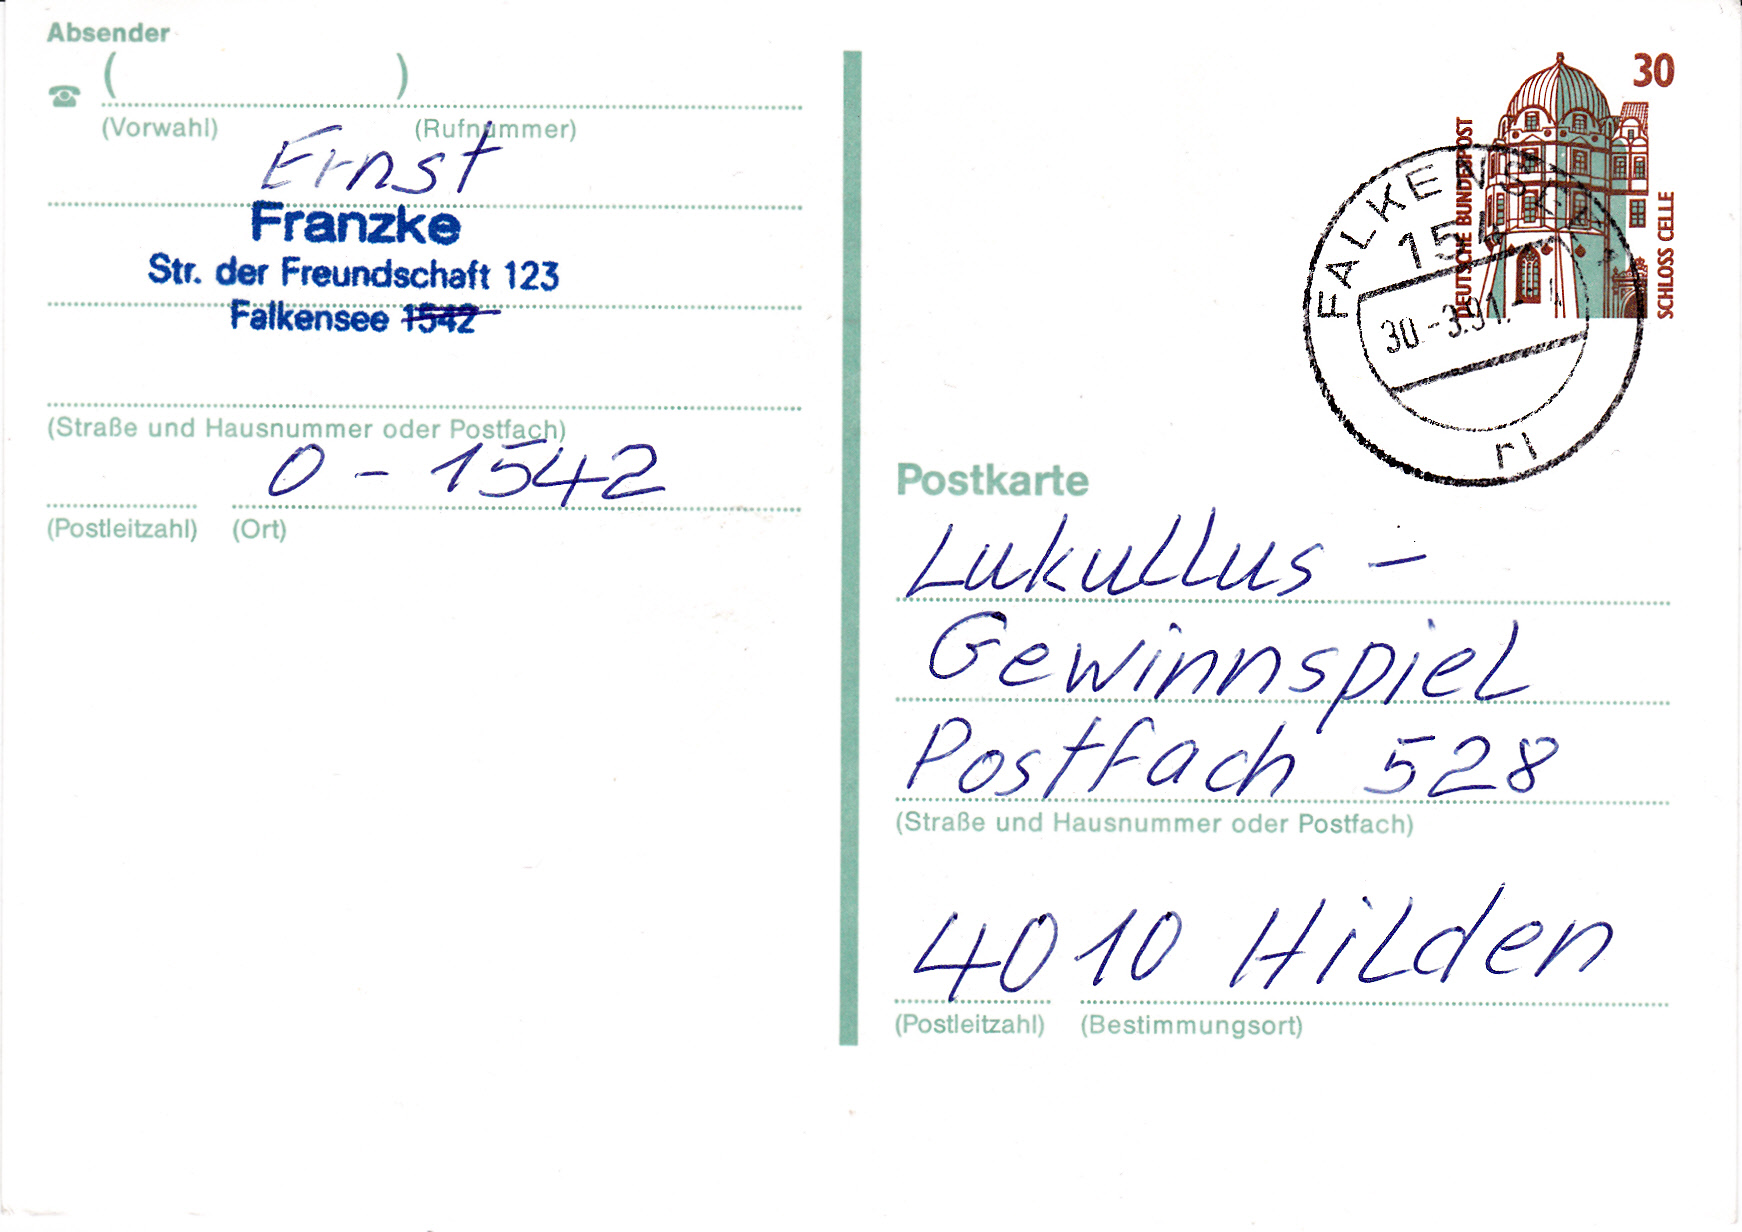 Absender
( )
(Vorwahl) (Rufnummer)
Ernst
Franzke
Str. der Freundschaft 123
Falkensee 1542
(Straße und Hausnummer oder Postfach)
O - 1542
(Postleitzahl) (Ort)
30
DEUTSCHE BUNDESPOST
SCHLOSS CELLE
FALKENSEE
154
30.-3.91.-
rl
Postkarte
Lukullus -
Gewinnspiel
Postfach 528
(Straße und Hausnummer oder Postfach)
4010 Hilden
(Postleitzahl) (Bestimmungsort)